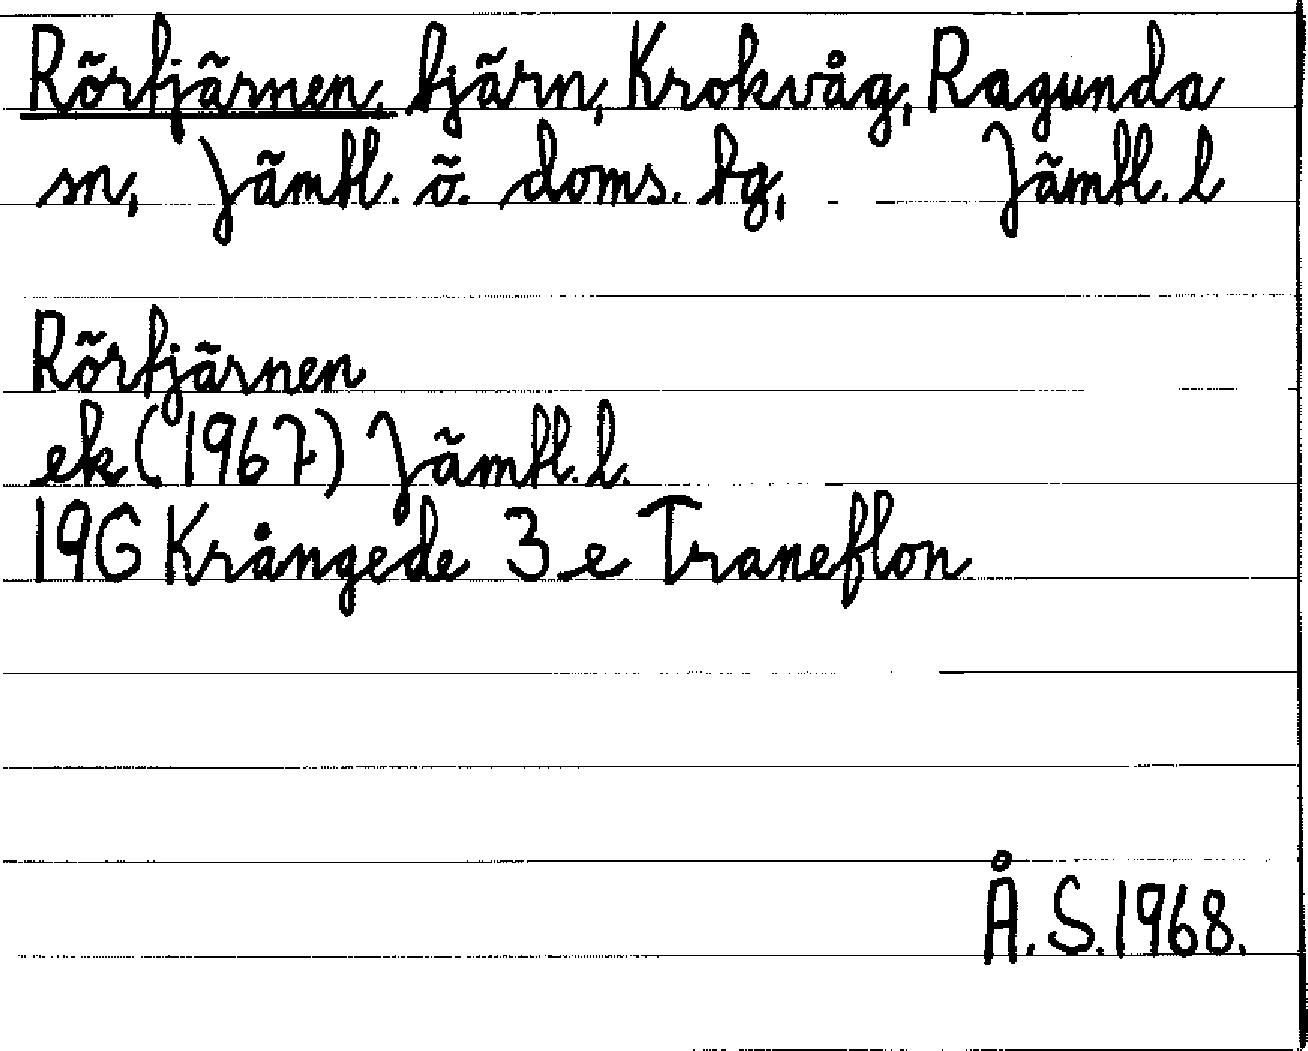 Rörtjärnen, tjärn, Krokvåg, Ragunda
sn, Jämtl. ö. doms. tg, Jämtl. l
Rörtjärnen
ek (1967) Jämtl. l.
19G Krångede 3 e Traneflon
Å. S. 1968.